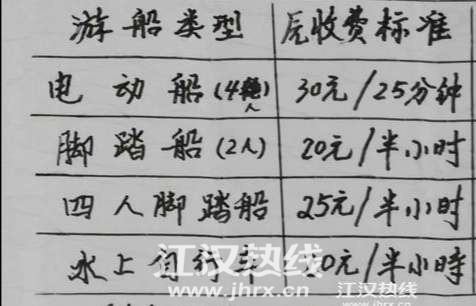 游船类型 应收费标准
电动船(4人) 30元/25分钟
脚踏船(2人) 20元/半小时
四人脚踏船 25元/半小时
水上自行车 0元/半小時
江汉热线
www.jhrx.cn
江汉热线
www.jhrx.cn